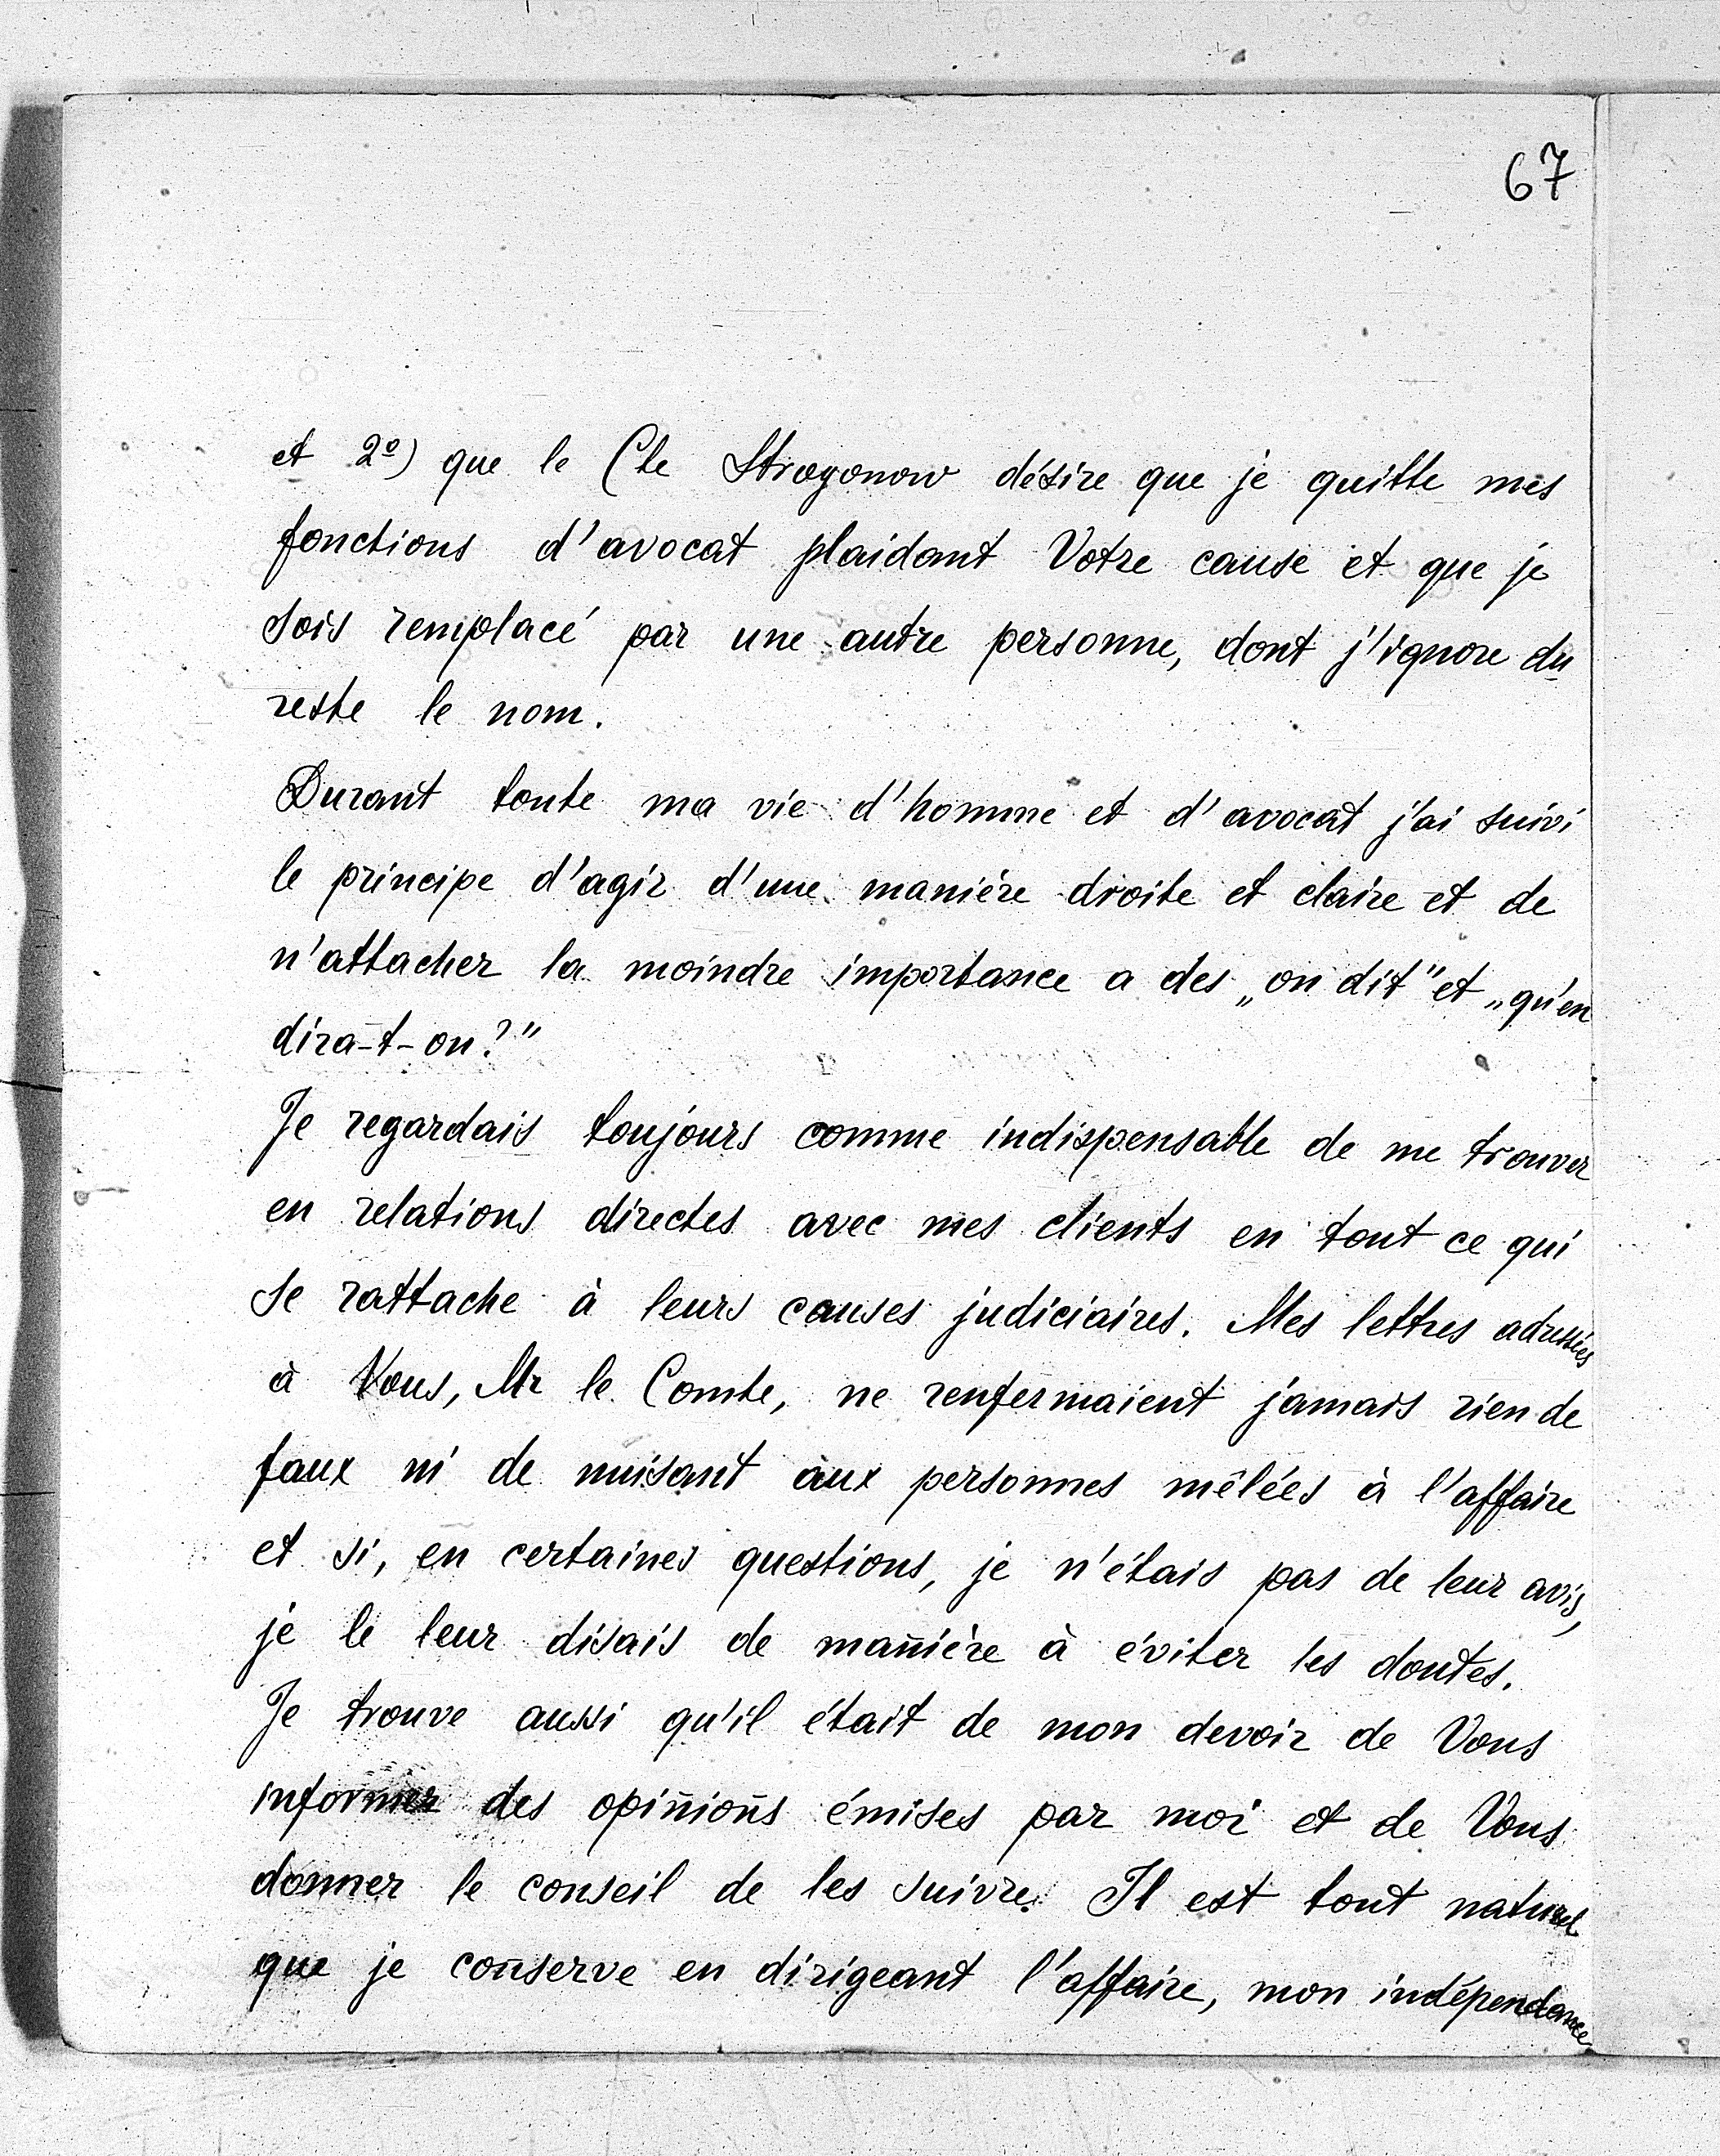 67
et 2º) que le Cte Strogonow désire que je quitte mes
fonctions d'avocat plaidant Votre cause et que je
sois remplacé par une autre personne, dont j'ignore du
reste le nom.
Durant toute ma vie d'homme et d'avocat j'ai suivi
le principe d'agir d'une manière droite et claire et de
n'attacher la moindre importance a des „on dit" et „qu'en
dira-t-on?"
Je regardais toujours comme indispensable de me trouver
en relations directes avec mes clients en tout ce qui
se rattache à leurs causes judiciaires. Mes lettres adressées
à Vous, Mr le Comte, ne renfermaient jamais rien de
faux ni de nuisant aux personnes mêlées à l'affaire
et si, en certaines questions, je n'étais pas de leur avis,
je le leur disais de manière à éviter les doutes.
Je trouve aussi qu'il était de mon devoir de Vous
informer des opinions émises par moi et de Vous
donner le conseil de les suivre. Il est tout naturel
que je conserve en dirigeant l'affaire, mon indépendance